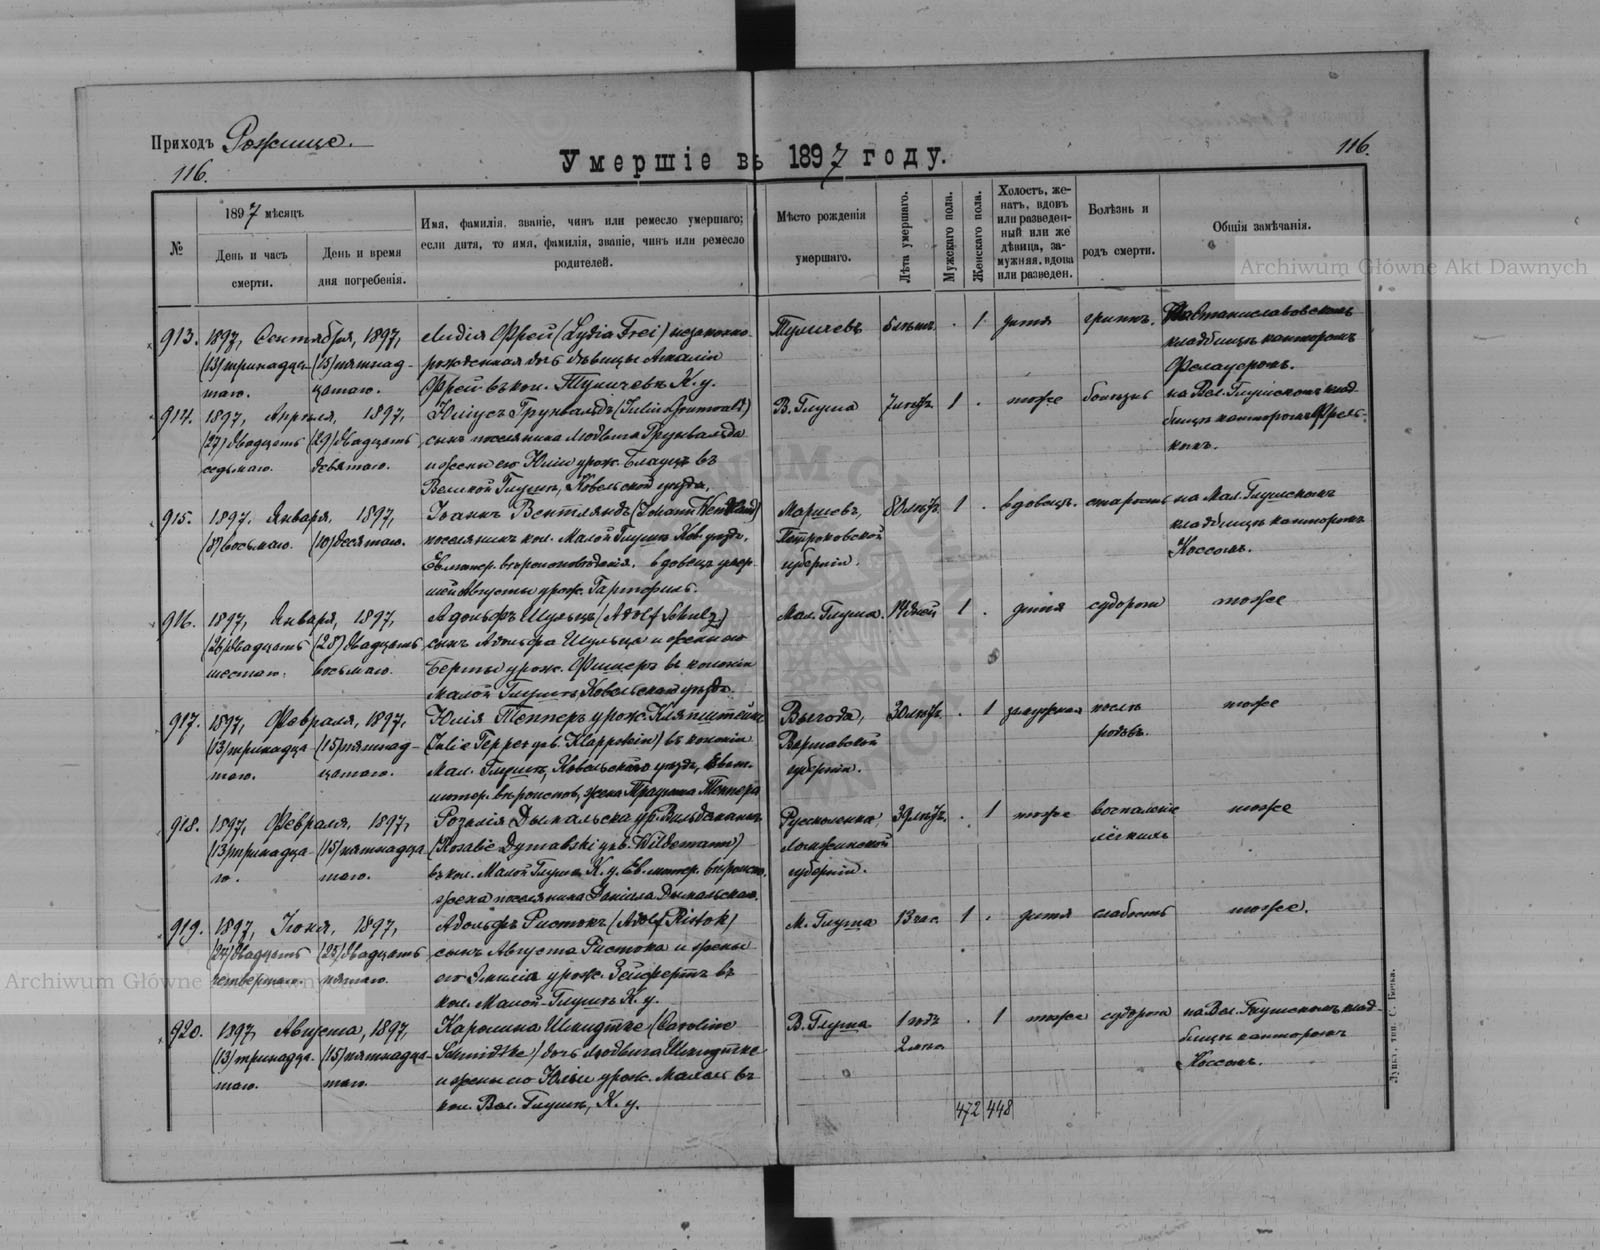 Приходъ Рожище.
116.
Умершіе въ 1897 году.
116.
№
1897 мѣсяцъ
День и часъ смерти.
День и время дня погребенія.
Имя, фамилія, званіе, чинъ или ремесло умершаго; если дитя, то имя, фамилія, званіе, чинъ или ремесло родителей.
Мѣсто рожденія умершаго.
Лѣта умершаго.
Мужескаго пола.
Женскаго пола.
Холостъ, женатъ, вдовъ или разведенный или же дѣвица, замужняя, вдова или разведен.
Болѣзнь и родъ смерти.
Общія замѣчанія.
Archiwum Główne Akt Dawnych
913. 1897, Сентября, 1897, Лидія Фрей (Lydia Frei) незаконно- Туличевъ 1 дитя гриппъ.
(13) тринадца- (15) пятнад- рожденная дочь дѣвицы Амаліи кладбищѣ канторомъ
таго. цатаго. Фрей въ кол. Туличевъ К. у.
914. 1897, Апрѣля, 1897, Юліусъ Грунвальдъ (Julius Grunwald) В. Глуша 7 1 тоже болѣзнь на Вел. Глушскомъ клад-
(27) двадцать (29) двадцать сынъ поселянина Людвига Грунвальда бищѣ канторомъ
седьмаго. девятаго. и жены его Юліи урож. въ
Великой Глушѣ, Ковельской уѣзда.
915. 1897, Января, 1897, Іоаннъ Вентляндъ (Johann Wentland) 80 лѣтъ 1 вдовецъ старость на Мал. Глушскомъ
(8) восьмаго. (10) десятаго. поселянинъ кол. Малой Глушѣ Ков. уѣзда, Петроковской кладбищѣ канторомъ
Ев. лютер. вѣроисповѣданія, вдовецъ умер- губерніи. Коссомъ.
шей Августы урож.
916. 1897, Января, 1897, Адольфъ Шульцъ (Adolf Schulz) Мал. Глуша 14 дней 1 дитя судороги тоже
(26) двадцать (28) двадцать сынъ Адольфа Шульца и жены его
шестаго. восьмаго. Берты урож. Фишеръ въ колоніи
Малой Глушѣ Ковельской уѣзда.
917. 1897, Февраля, 1897, Юлія Тепперъ урож. Кляпштейнъ Выгода, 30 лѣтъ 1 замужняя послѣ тоже
(13) тринадца- (15) пятнад- (Julie Tepper geb. Klappstein) въ колоніи Варшавской родовъ.
таго. цатаго. Мал. Глушѣ, Ковельскаго уѣзда, Еван. губерніи.
лютер. вѣроиспов, жена Теппера
918. 1897, Февраля, 1897, Розалія Дымальска ур. Вильдеманнъ 39 лѣтъ. 1 тоже воспаленіе тоже
(13) тринадца- (15) пятнадца- (Rosalie Dymalski geb. Wildemann) Ломжинской лёгкихъ
го. таго. въ кол. Малой Глушѣ К. у. Ев. лютер. вѣроиспо. губерніи.
жена поселянина Даніила Дымальскаго.
919. 1897, Іюня, 1897, Адольфъ Ристокъ (Adolf Ristok) М. Глуша 13 час. 1 дитя слабость тоже.
(24) двадцать (25) двадцать сынъ Августа Ристока и жены
четвертаго. пятаго. его Эмилія урож. Зейфертъ въ
кол. Малой-Глушѣ К. у.
Archiwum Główne
920. 1897, Августа, 1897, Каролина Шмидтке (Caroline В. Глуша 1 годъ 1 тоже судороги на Вел. Глушскомъ клад-
(13) тринадца- (15) пятнадца- Schmidtke) дочь Людвига Шмидтке 2 мѣс. бищѣ канторомъ
таго. таго. и жены его Юліи урож. въ Коссомъ.
кол. Вел. Глушѣ, К. у.
472 448
Луцкъ, тип. С. Бонка.